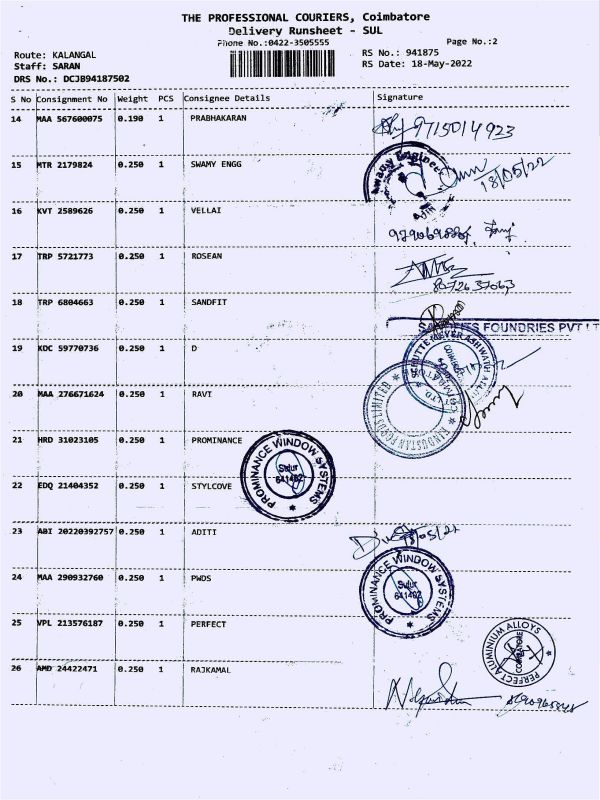 THE PROFESSIONAL COURIERS, Coimbatore
Delivery Runsheet - SUL
Phone No.:0422-3505555
Page No.:2
Route: KALANGAL
RS No.: 941875
Staff: SARAN
RS Date: 18-May-2022
DRS No.: DCJB94187502
S No Consignment No Weight PCS Consignee Details Signature
14 MAA 567600075 0.190 1 PRABHAKARAN 9715014923
15 MTR 2179824 0.250 1 SWAMY ENGG
Swamy Engineer
18/05/22
16 KVT 2589626 0.250 1 VELLAI
17 TRP 5721773 0.250 1 ROSEAN
8072637063
18 TRP 6804663 0.250 1 SANDFIT
FOUNDRIES PVT LT
19 KDC 59770736 0.250 1 D
20 MAA 276671624 0.250 1 RAVI
LIMITED
21 HRD 31023105 0.250 1 PROMINANCE
PROMINANCE WINDOW SYSTEMS
Sulur
641402
22 EDQ 21404352 0.250 1 STYLCOVE
23 ABI 20220392757 0.250 1 ADITI
24 MAA 290932760 0.250 1 PWDS
PROMINANCE WINDOW SYSTEMS
Sulur
641402
25 VPL 213576187 0.250 1 PERFECT
PERFECT ALUMINIUM ALLOYS
COIMBATORE
26 AMD 24422471 0.250 1 RAJKAMAL